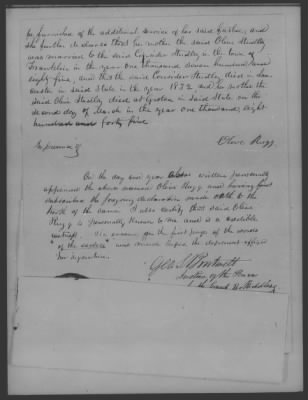 in furtherance of the additional service of his said father, and
she further declares that her mother the said Olive Studley
was married to the said Consider Studley in the town of
Franklin in the year one thousand seven hundred and
eighty five, and that the said Consider Studley died in
in said State in the year 1832 and her mother the
said Olive Studley died at Groton in said State on the
second day of March in the year one thousand, eight
hundred and forty five
In presence of
Olive Rugg
On the day and year above written personally
appeared the above named Olive Rugg and having first
subscribed the foregoing declaration made oath to the
truth of the same. I also certify that said Olive
Rugg is personally known to me and is a credible
witness. The erasure on the first page of the words
"of the said" was made before the deponent affixed
her signature.
Geo.
Justice of the Peace